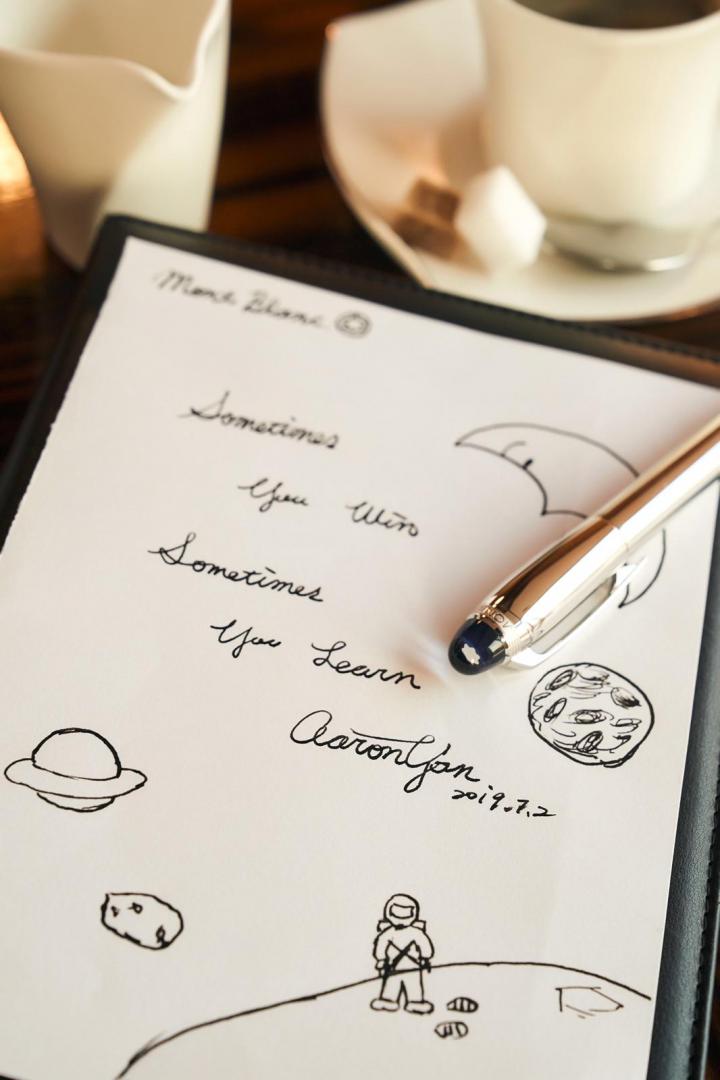 Mont Blanc ☺
Sometimes
You Win
Sometimes
You Learn
AaronYan
2019.7.2